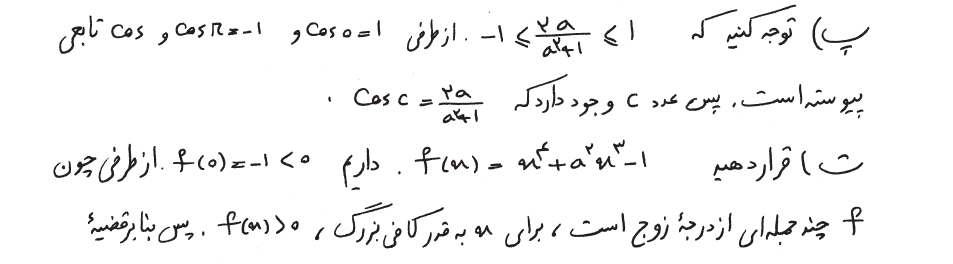 پ) توجه کنید که ‎-۱ ≤ ۲a/(a²+۱) ≤ ۱‎ . از طرفی cos ۰ = ۱ و cos π = -۱ و cos تابعی
پیوسته است. پس عدد c وجود دارد که cos c = ۲a/(a²+۱) .
ت) قرار دهید f(x) = x⁴ + a²x³ - ۱ . داریم f(۰) = -۱ < ۰ . از طرفی چون
f چند جمله‌ای از درجهٔ زوج است، برای x به قدر کافی بزرگ، f(x) > ۰ . پس بنابر قضیهٔ